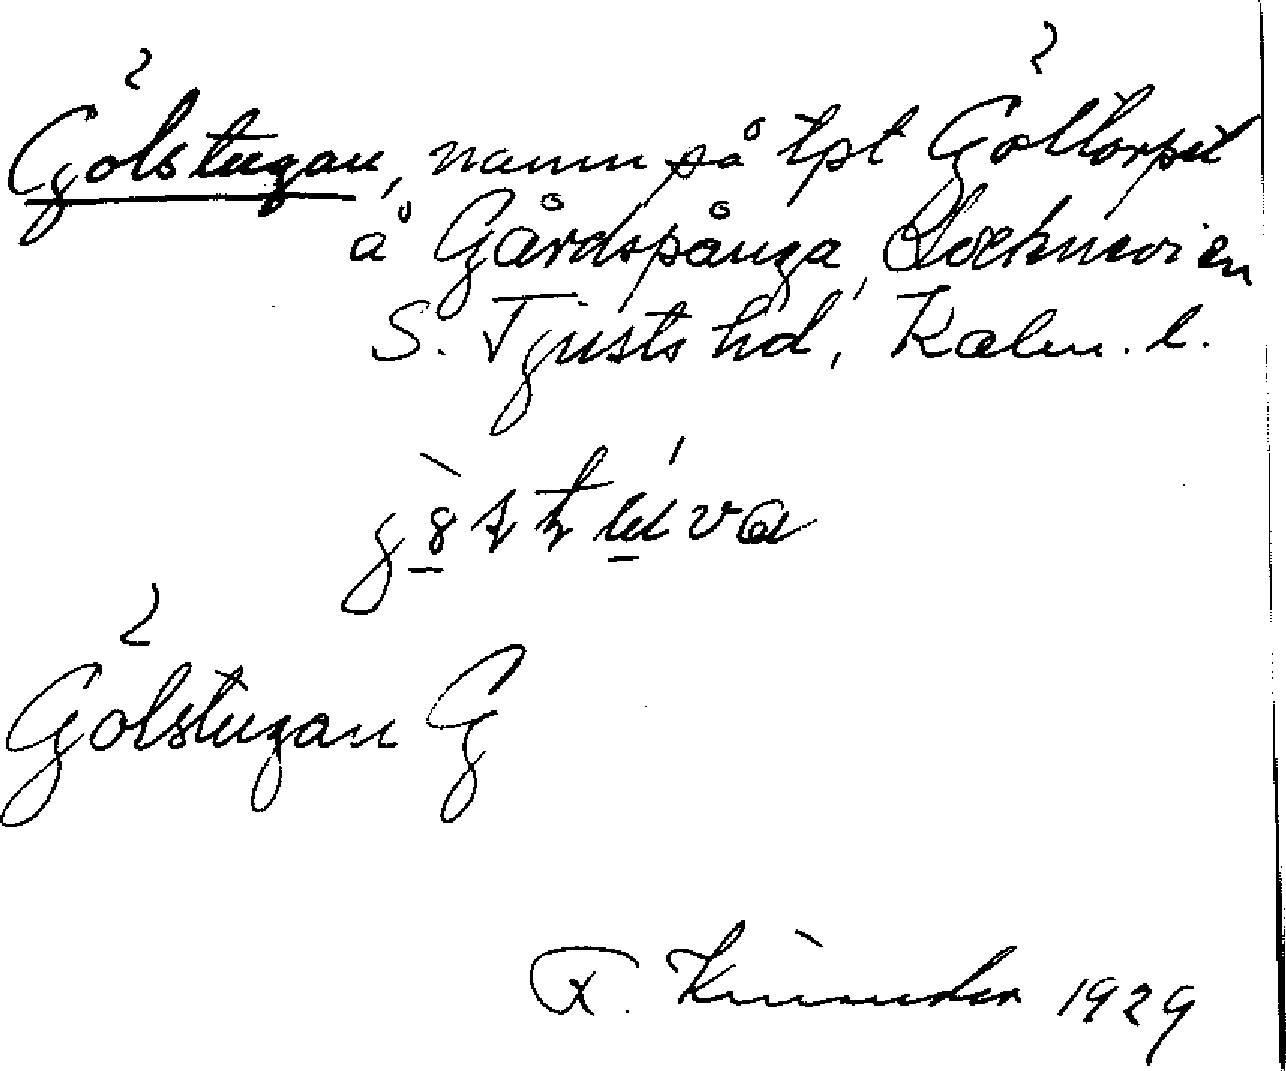 Gölstugan, namn på tpt Göltorpet
å Gårdspånga, Locknevi sn
S. Tjusts hd, Kalm. l.
Gölstugan G
F. 1929